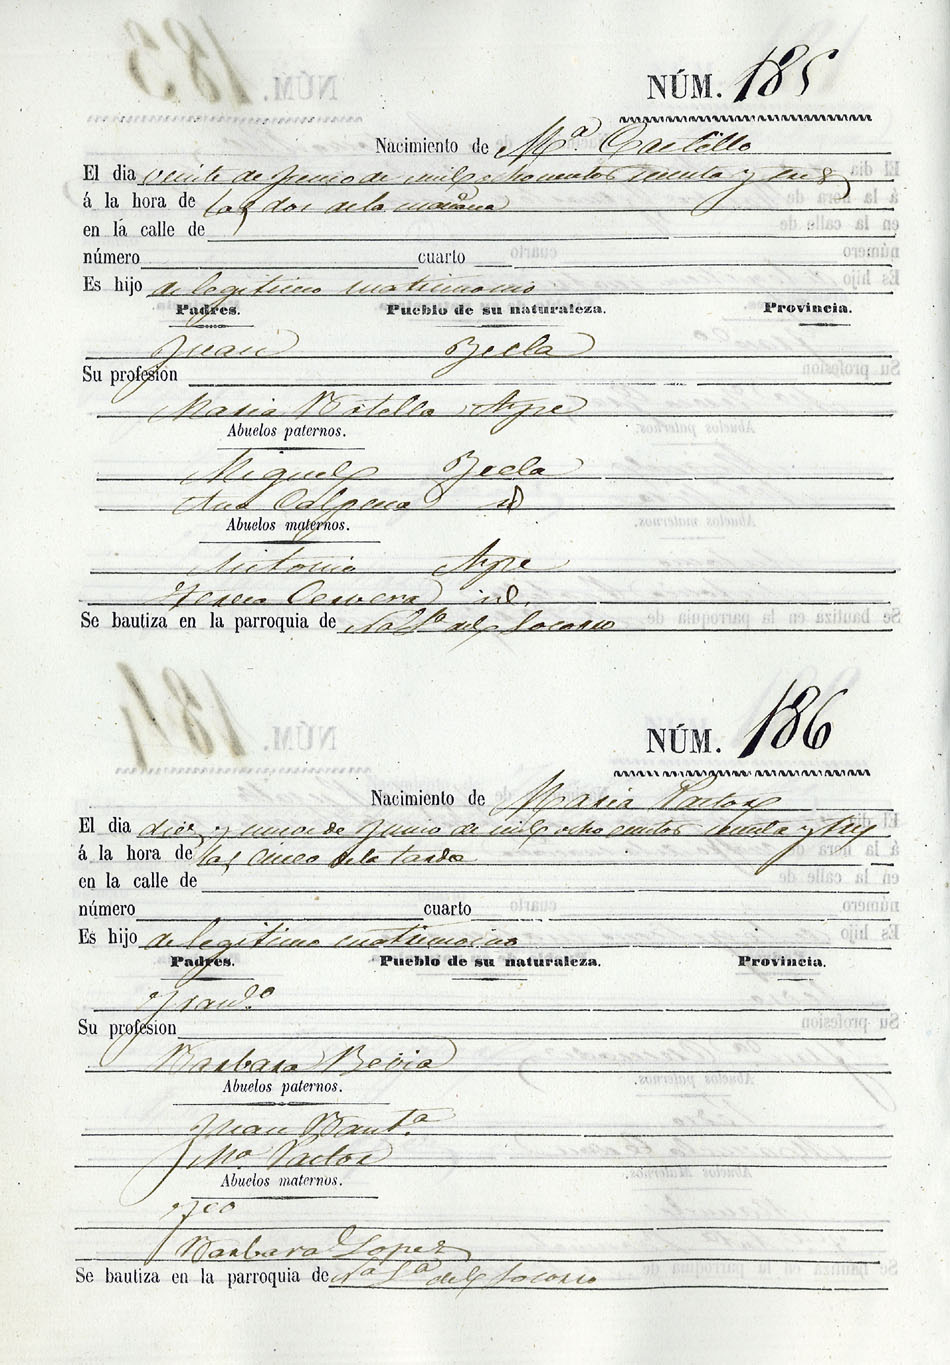 NÚM. 185
Nacimiento de Mª. Castillo
El dia veinte de Junio de mil ochocientos
á la hora de las dos de la mañana
en la calle de
número cuarto
Es hijo de legitimo matrimonio
Padres. Pueblo de su naturaleza. Provincia.
Juan
Su profesion
Maria
Abuelos paternos.
Miguel
Ana id
Abuelos maternos.
Antonio
Teresa Cervera id.
Se bautiza en la parroquia de del Socorro
NÚM. 186
Nacimiento de Maria Pastor
El dia diez y nueve de Junio de mil ocho cientos
á la hora de las cinco de la tarde
en la calle de
número cuarto
Es hijo de legitimo matrimonio
Padres. Pueblo de su naturaleza. Provincia.
Franco
Su profesion
Barbara Bevia
Abuelos paternos.
Juan Bautª.
Mª Pastor
Abuelos maternos.
Fco
Barbara Lopez
Se bautiza en la parroquia de Nª Sª del Socorro